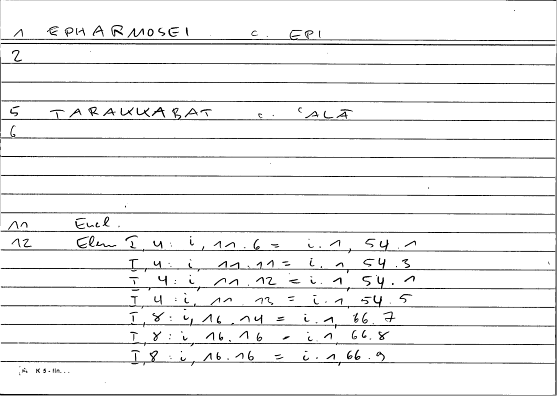 1 EPHARMOSEI c. EPI
2
5 TARAKKABAT c. ʿALĀ
6
11 Eucl.
12 Elem I, 4 : i, 11.6 = i.1, 54.1
I, 4 : i, 11.11 = i.1, 54.3
I, 4 : i, 11.12 = i.1, 54.1
I, 4 : i, 11.13 = i.1, 54.5
I, 8 : i, 16.14 = i.1, 66.7
I, 8 : i, 16.16 = i.1, 66.8
I, 8 : i, 16.16 = i.1, 66.9